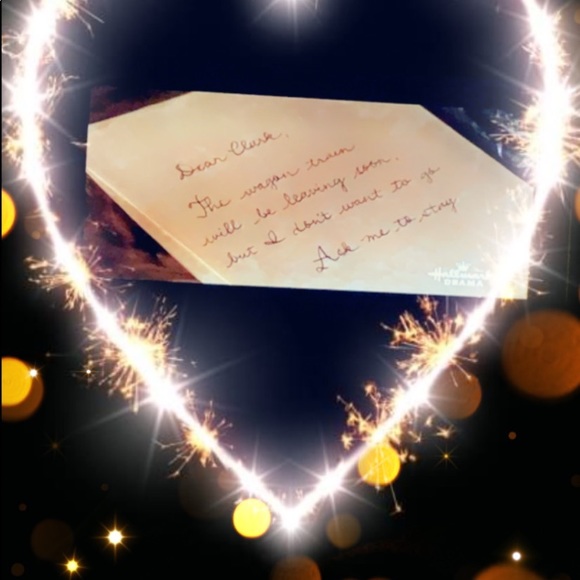 Dear Clark,
The wagon train
will be leaving soon,
but I don't want to go
Ask me to stay
Hallmark
DRAMA